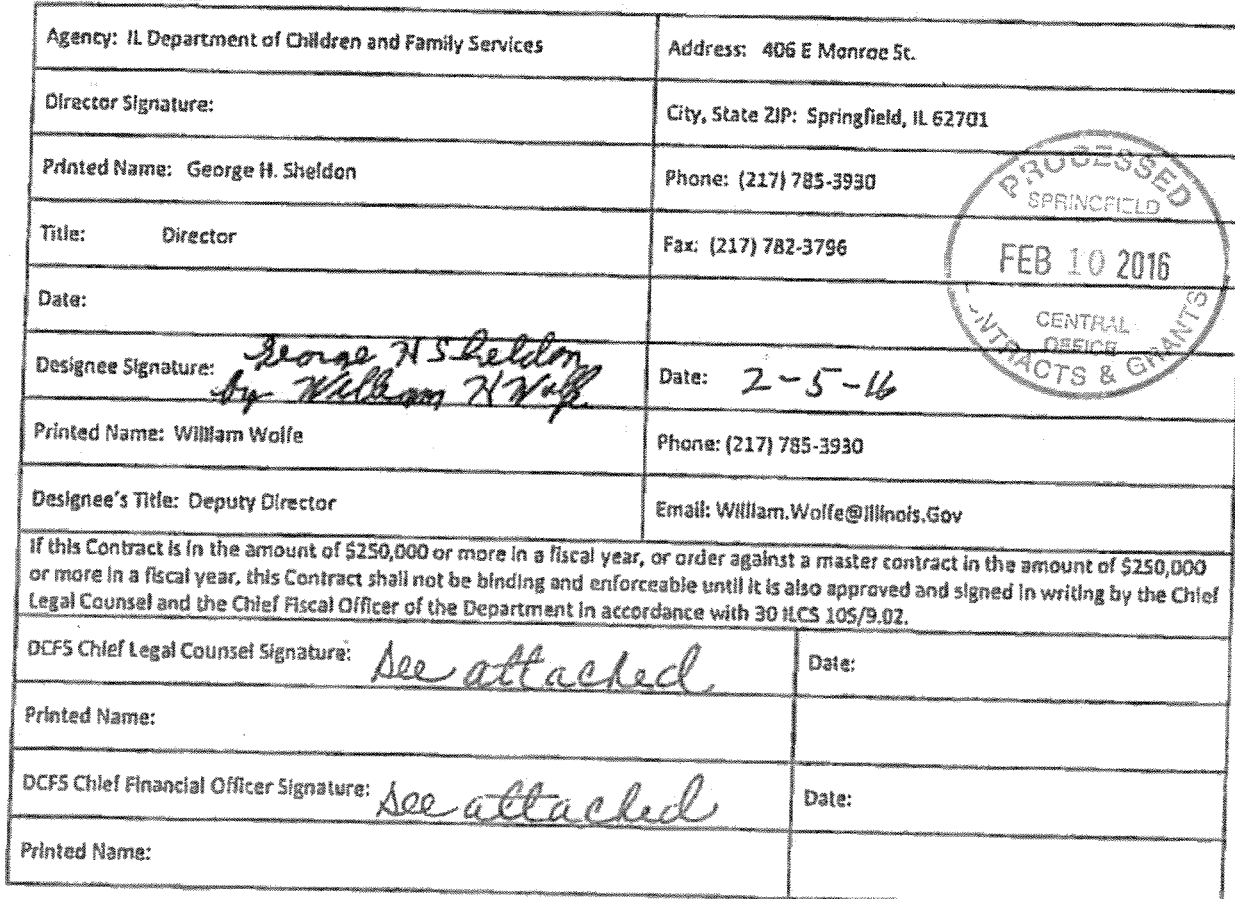 Agency: IL Department of Children and Family Services
Address: 406 E Monroe St.
Director Signature:
City, State ZIP: Springfield, IL 62701
Printed Name: George H. Sheldon
Phone: (217) 785-3930
Title: Director
Fax: (217) 782-3796
Date:
PROCESSED
SPRINGFIELD
FEB 10 2016
CENTRAL
OFFICE
CONTRACTS & GRANTS
Designee Signature: George H Sheldon
by William H Wolfe
Date: 2-5-16
Printed Name: William Wolfe
Phone: (217) 785-3930
Designee's Title: Deputy Director
Email: William.Wolfe@Illinois.Gov
If this Contract is in the amount of $250,000 or more in a fiscal year, or order against a master contract in the amount of $250,000
or more in a fiscal year, this Contract shall not be binding and enforceable until it is also approved and signed in writing by the Chief
Legal Counsel and the Chief Fiscal Officer of the Department in accordance with 30 ILCS 105/9.02.
DCFS Chief Legal Counsel Signature: See attached
Date:
Printed Name:
DCFS Chief Financial Officer Signature: See attached
Date:
Printed Name: